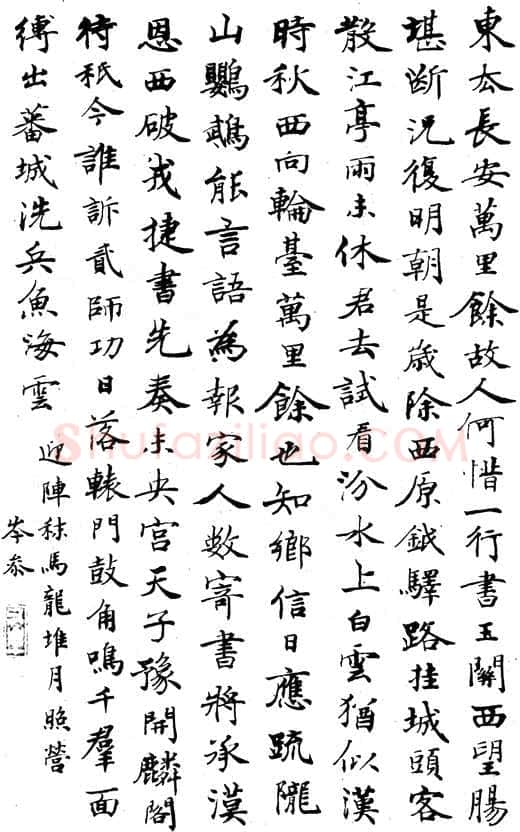 東去長安萬里餘故人何惜一行書玉關西望腸
堪断況復明朝是歲除西原鉞驛路挂城頭客
散江亭雨未休君去試看汾水上白雲猶似漢
時秋西向輪臺萬里餘也知鄉信日應疏隴
山鸚鵡能言語為報家人數寄書將承漠
恩西破戎捷書先奏未央宮天子豫開麟閣
待秖今誰訴貳師功日落轅門鼓角鳴千羣面
縛出蕃城洗兵魚海雲
迎陣秣馬龍堆月照營
岑參
Shufaziliao.COM